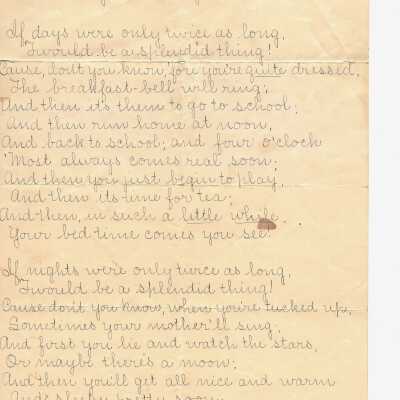 If days were only twice as long,
'Twould be a splendid thing!
Cause, don't you know, 'fore you're quite dressed,
The breakfast-bell will ring;
And then it's them to go to school;
And then run home at noon,
And back to school; and four o'clock
'Most always comes real soon;
And then you just begin to play,
And then its time for tea;
And then, in such a little while
Your bed time comes you see!
If nights were only twice as long,
'Twould be a splendid thing!
Cause don't you know, when you're tucked up,
Sometimes your mother'll sing;
And first you lie and watch the stars,
Or maybe there's a moon;
And then you'll get all nice and warm
And sleepy pretty soon;